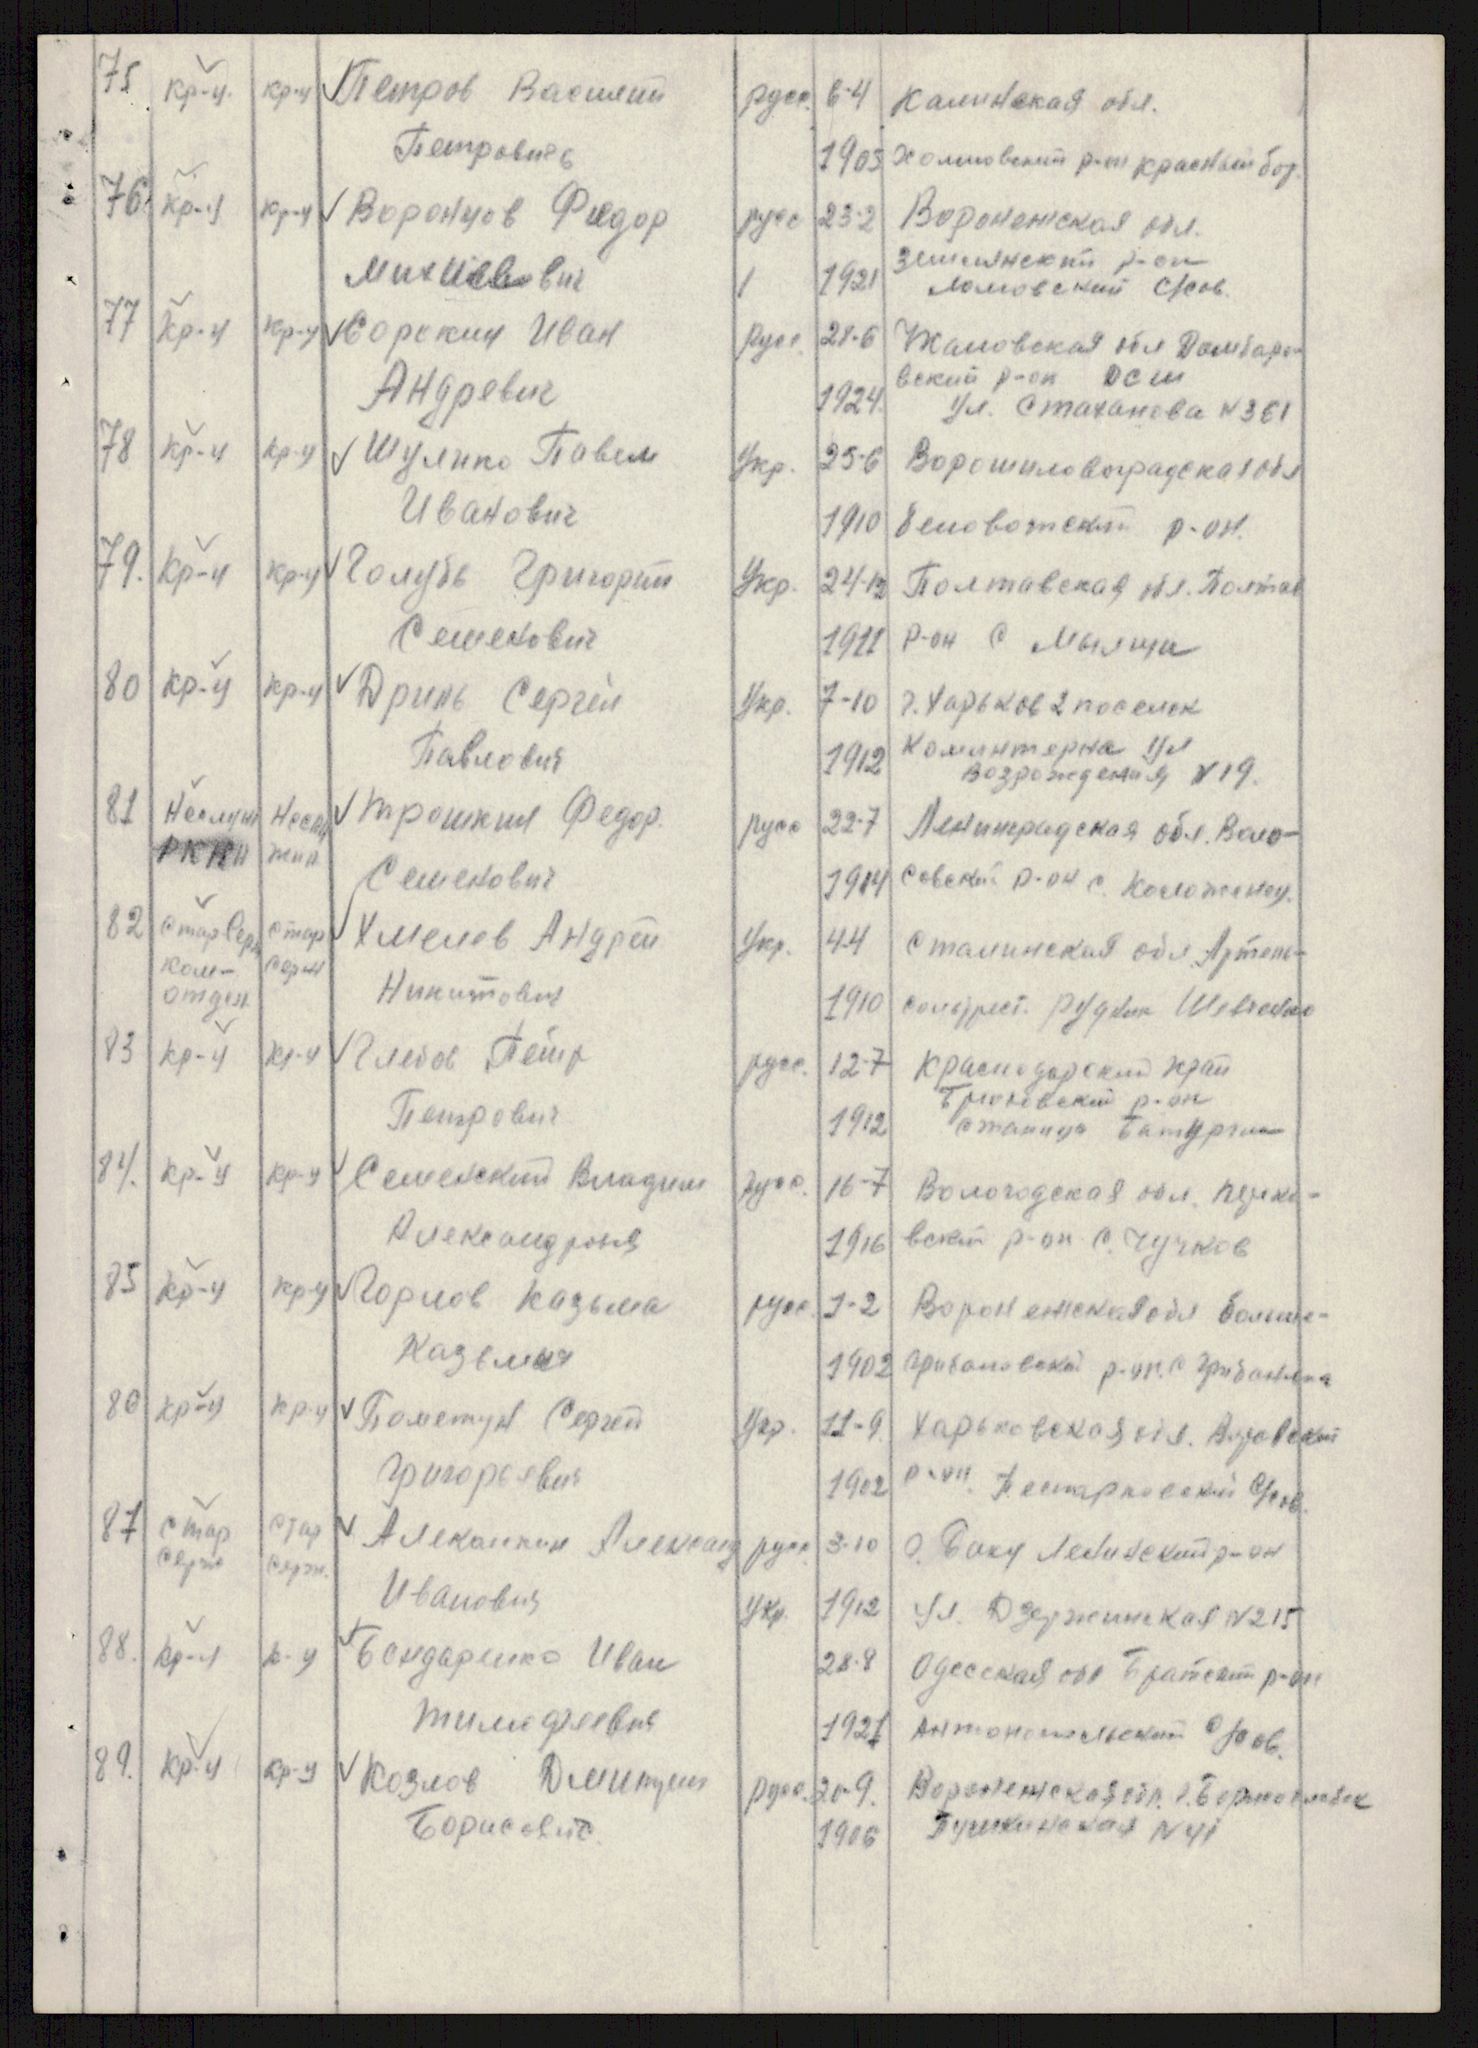 75 кр-ц. кр-ц Петров Василий русс. 6-4 Калинская обл.
Петровичь 1905 Холмовский р-он Красный бор.
76. кр-ц кр-ц Воронцов Федор русс 23-2 Воронежская обл.
Землянский р-он
вич 1921 Ломовский С/сов.
77 кр-ц кр-ц Сорокин Иван Русс. 21-6 Чкаловская обл Домбаро-
вский р-он ДСШ
Андревич 1924. ул. Стаханова N 361
78 кр-ц кр-ц Шулико Павел Укр. 25-6 Ворошиловоградская обл
Иванович 1910 беловотский р-он.
79. Кр-ц кр-ц Голубь Григорий Укр. 24-12 Полтавская обл. Полтав
Семенович 1911 р-он с
80 кр-ц кр-ц Дринь Сергей Укр. 7-10 г. Харьков 2 поселок
Коминтерна ул
Павлович 1912 возрождения N 19.
81 Трошкин Федор. русс 22-7 Ленинградская обл. Воло-
Семенович 1914 совский р-он с.
82 Стар Серж стар Хмелев Андрей Укр. 4-4 Сталинская обл. Артемь-
ком- серж
отдел Никитович 1910 рудник Шевченко
83 кр-ц кр-ц Глебов Петр русс. 12-7 Краснодарский край
р-он
Петрович 1912 станица Батурин
84. кр-ц кр-ц Семенский Владим русс. 16-7 Вологодская обл.
1916 вский р-он с. Чучков
85 кр-ц кр-ц Горлов Казьма русс. 1-2 Воронежская обл больше-
Казьмич 1902 грибановский р-он. с
86 кр-ц кр-ц Сергей Укр. 11-9. Харьковская обл.
Григорьевич 1902 р-он. С/сов.
87 стар стар Александ русс 3-10 г. Баку Ленинский р-он
серж серж.
Иванович Укр. 1912 ул. Дзержинская N 215
88. кр-ц к-ц Бондаренко Иван 28-8 Одесская обл Братский р-он
Тимофеевич 1921 С/сов.
89. кр-ц кр-ц Козлов Дмитрий русс. 20-9. Воронежская обл. г. Борисоглебск
Борисович. 1906 Пушкинская N 41